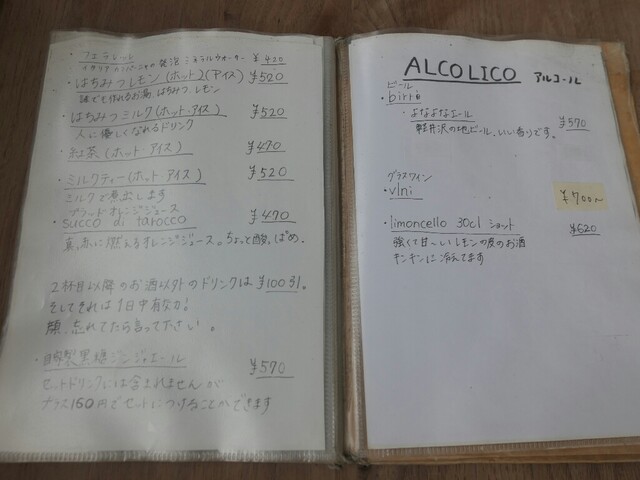 ・フェラレッレ
イタリア カンパーニャの 発泡 ミネラルウォーター ¥420
・はちみつレモン(ホット)(アイス) ¥520
誰でも作れるお湯 はちみつ レモン
・はちみつミルク(ホット・アイス) ¥520
人に優しくなれるドリンク
・紅茶(ホット・アイス) ¥470
・ミルクティー(ホット・アイス) ¥520
ミルクで煮出します
ブラッドオレンジジュース
・succo di tarocco ¥470
真っ赤に燃えるオレンジジュース。ちょっと酸っぱめ。
2杯目以降のお酒以外のドリンクは¥100引。
そしてそれは1日中有効!
顔、忘れてたら言って下さい。
・自家製黒糖ジンジャエール ¥570
セットドリンクには含まれませんが
プラス150円でセットにつけることができます
ALCOLICO アルコール
ビール
・birra
・よなよなエール ¥570
軽井沢の地ビール。いい香りです。
グラスワイン
・vini ¥700~
・limoncello 30cl ショット ¥620
強くて甘〜いレモンの皮のお酒
キンキンに冷えてます